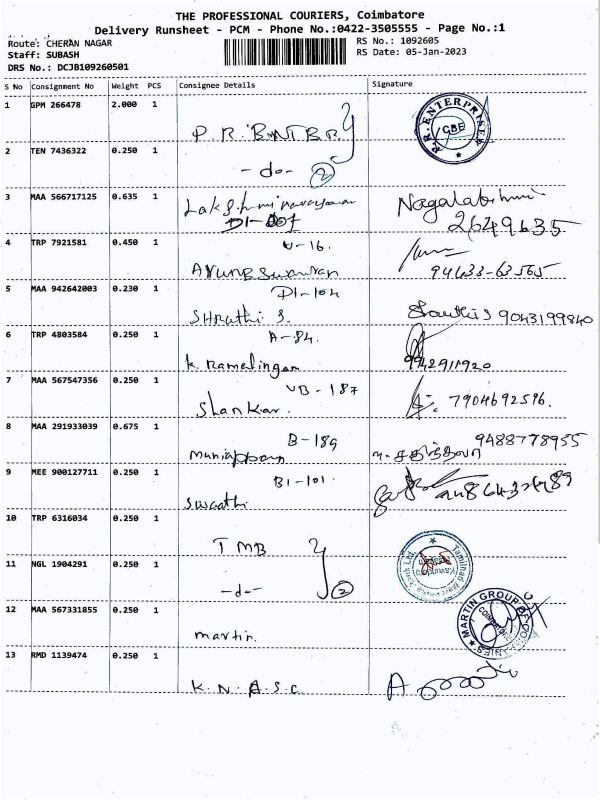 THE PROFESSIONAL COURIERS, Coimbatore
Delivery Runsheet - PCM - Phone No.:0422-3505555 - Page No.:1
Route: CHERAN NAGAR
RS No.: 1092605
Staff: SUBASH
RS Date: 05-Jan-2023
DRS No.: DCJB109260501
S No Consignment No Weight PCS Consignee Details Signature
1 GPM 266478 2.000 1
R.R. ENTERPRISES CBE
2 TEN 7436322 0.250 1
- do - 2
3 MAA 566717125 0.635 1 Lakshminarayanan Nagalakshmi
2649635
4 TRP 7921581 0.450 1 V-16.
94433-63565
5 MAA 942642003 0.230 1 D1-104
Shruthi S. 9043199840
6 TRP 4803584 0.250 1 A-84.
K. Ramalingam 9942911920
7 MAA 567547356 0.250 1 VB-187
Shankar. 7904692596.
8 MAA 291933039 0.675 1 B-189 9488778955
Muniappan
9 MEE 900127711 0.250 1 B1-101
Swaathi
10 TRP 6316034 0.250 1
TMB
11 NGL 1904291 0.250 1
- do - 2
12 MAA 567331855 0.250 1 MARTIN GROUP OF COMPANIES
martin.
13 RMD 1139474 0.250 1
K.N.A.S.C